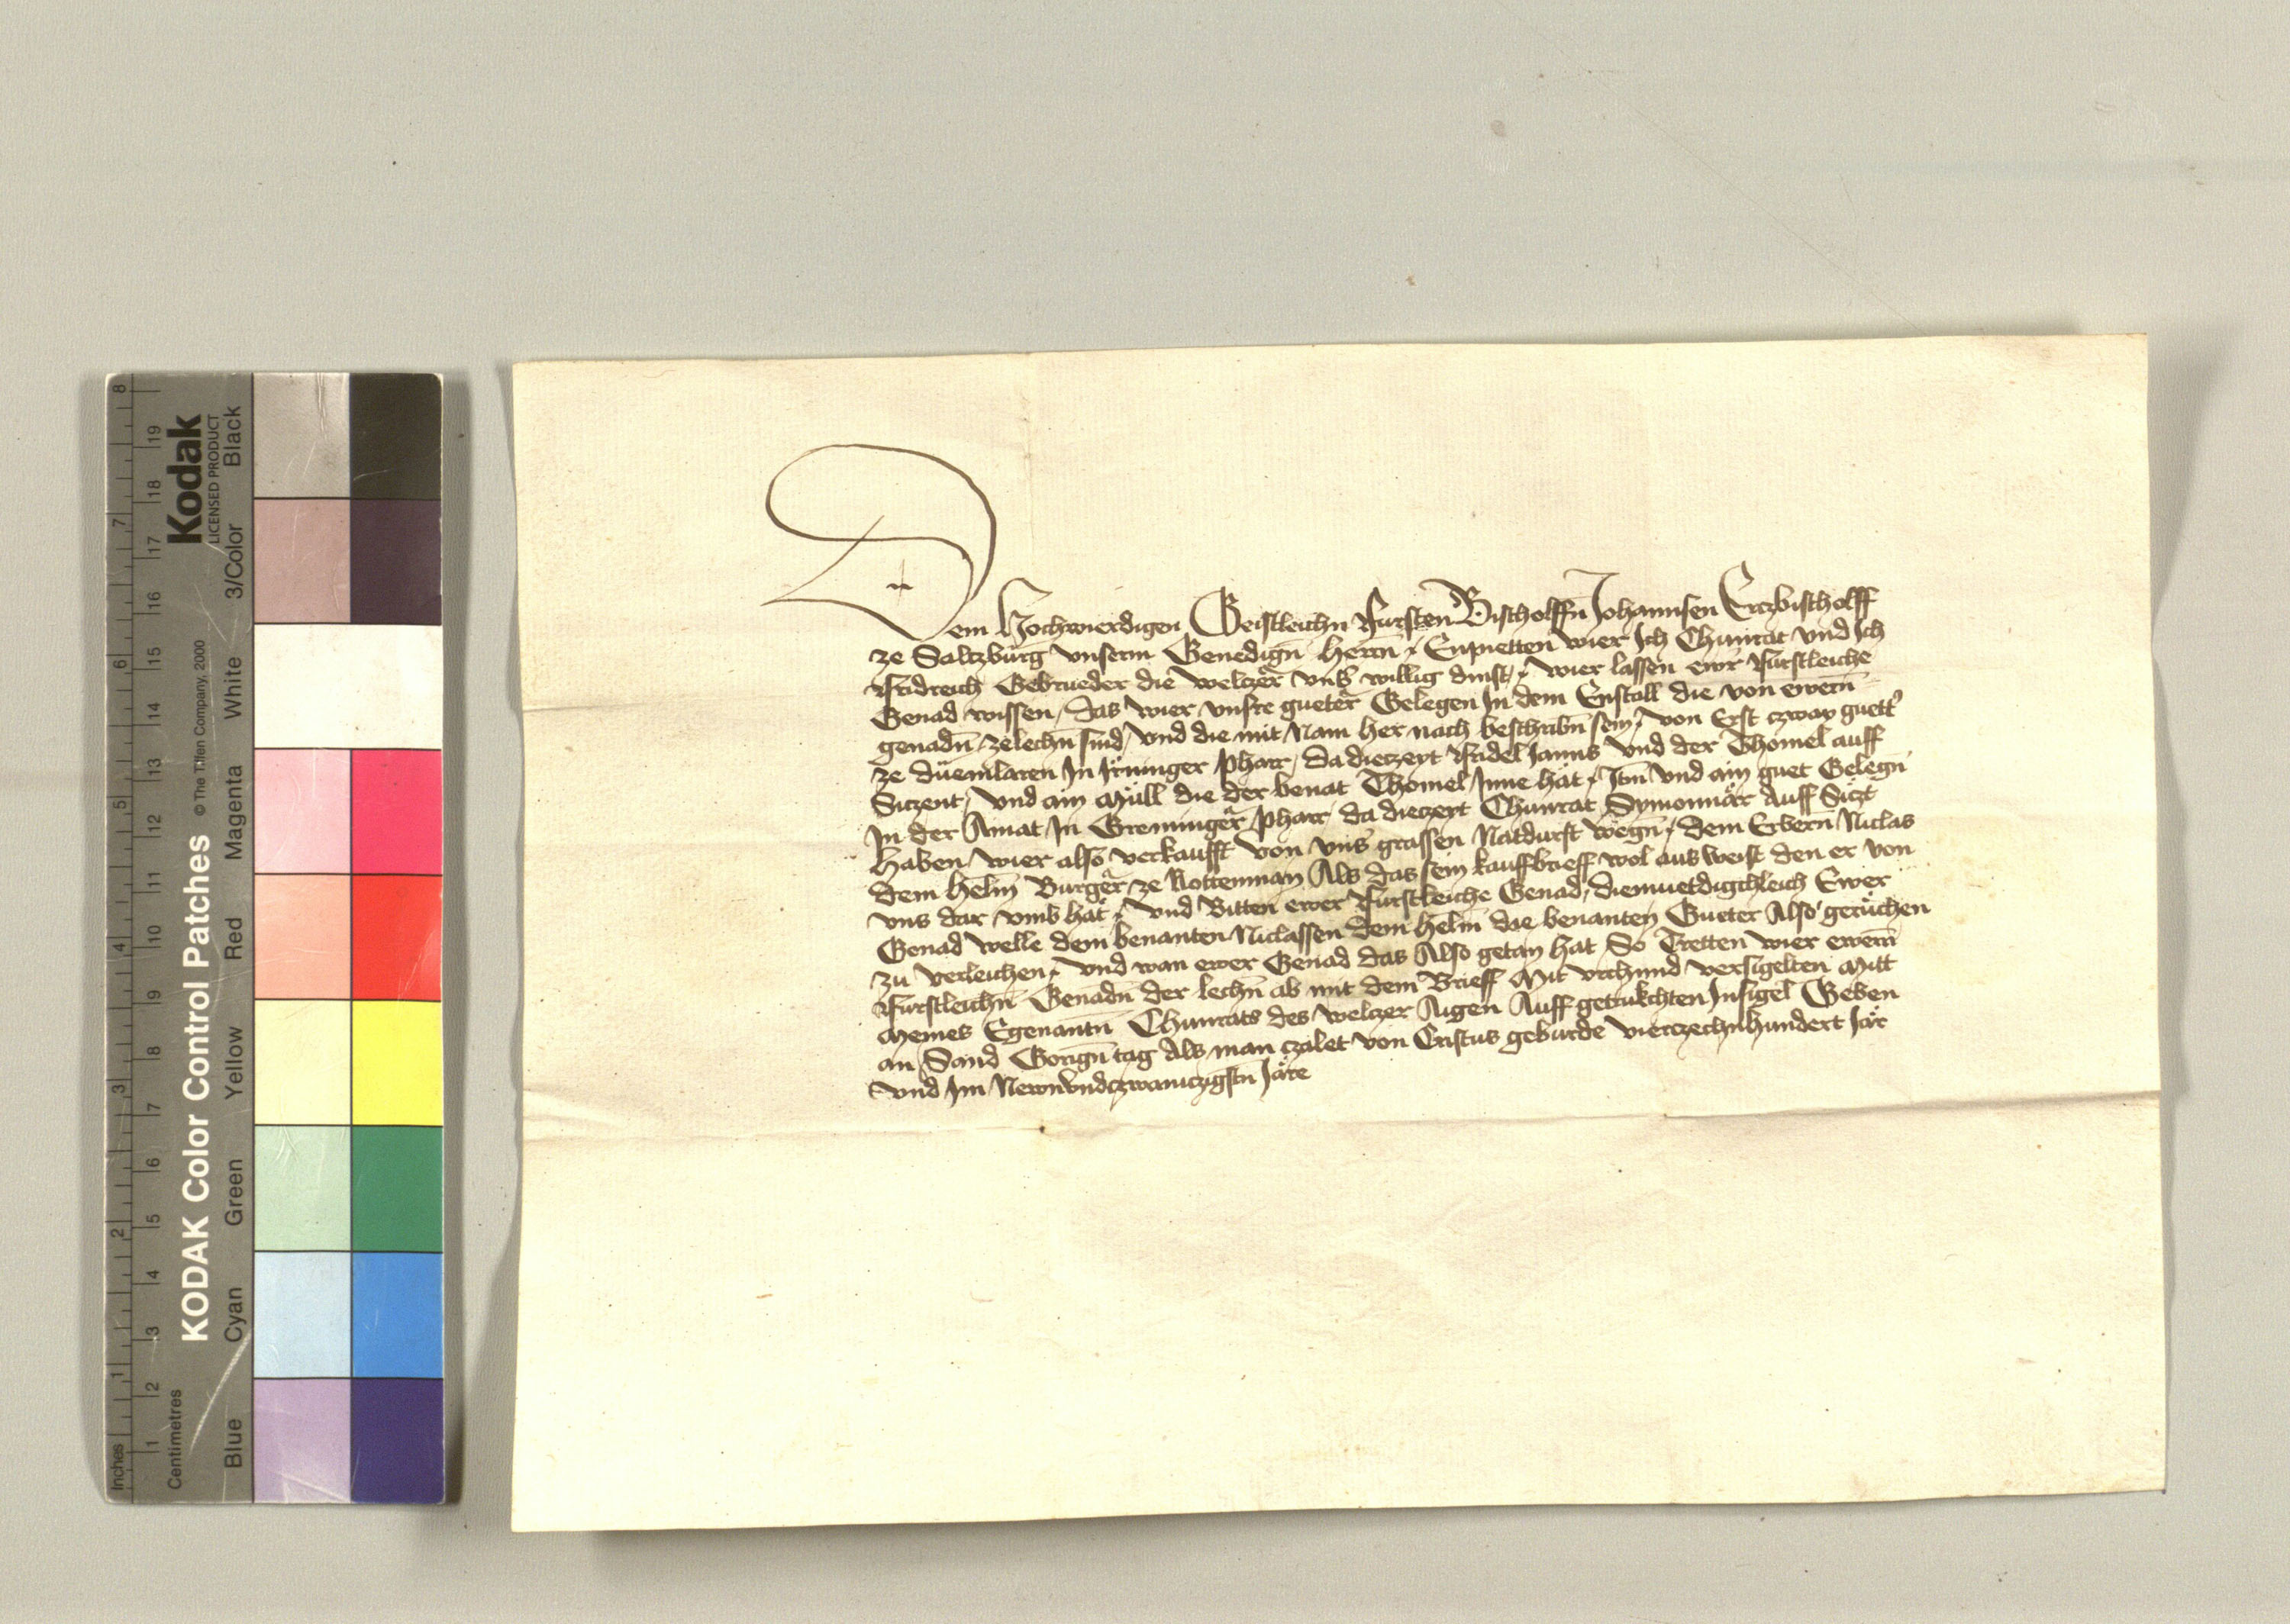 Dem Hochwierdigen Geistleichn Fursten Bischolffn Johannsen Ertzbischolff
ze Saltzburg vnserm Genedign herrn / Enpietten wier Ich Chunrat vnd Ich
Fridreich Gebrueder die welczer vns willig dinst / wier lassen ewr Furstleiche
Genad wissen / das wier vnsre gueter Gelegen In dem Enstall die von ewern
genadn zelechn sind / vnd die mit Nam her nach beschribn sein / von Erst czway guett
ze düemlaren In Irninger pharr / da dieczeyt Fridel Janns vnd der Thomel auff
Siczent / vnd ain Müll die der benat Thomel Inne hat / Itm vnd ain guet Gelegn
In der Amat In Greninger pharr da dieczeyt Chunrat Symonnär Auff Siczt
haben wier also verkaufft von vns grassen Natdurft wegn / dem Erbern Niclas
dem helm Burger ze Rottenman Als das sein kauffbrieff wol ausweist den er von
vns dar vmb hat / vnd Bitten ewer Furstleiche Genad / diemuetdigchleich Ewer
Genad welle dem benanten Niclassen dem helm die benanten Gueter Also geruchen
zu verleichen / vnd wan ewer Genad das Also getan hat So Tretten wier ewern
Furstleichn Genadn der lechn ab mit dem Brieff Mit vrchund versigelten Mitt
Meines Egenantn Chunrats des welczer Aigen Auff getrukchten Insigel Geben
an Sand Gorign tag Als man czalet von Cristus geburde vierczechnhundert Jar
vnd Im Newnvndczwainczigstn Jare
KODAK Color Control Patches
© The Tiffen Company, 2000
Kodak
LICENSED PRODUCT
Inches 1 2 3 4 5 6 7 8
Centimetres 1 2 3 4 5 6 7 8 9 10 11 12 13 14 15 16 17 18 19
Blue Cyan Green Yellow Red Magenta White 3/Color Black